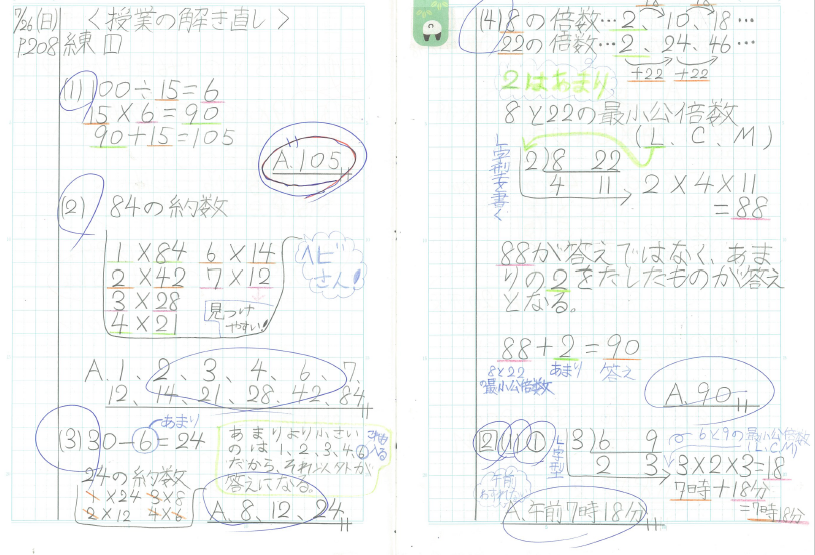 7/26(日) <授業の解き直し>
P208 練1
(1) 100÷15=6
15×6=90
90+15=105
A.105
(2) 84の約数
1×84 6×14
2×42 7×12
3×28
4×21
ヘビさん!
見つけやすい!
A.1、2、3、4、6、7、
12、14、21、28、42、84
(3) 30-6=24
あまり
24の約数
1×24 3×8
2×12 4×6
あまりより小さい
のは1、2、3、4、6
だから、それ以外が
答えになる。
これも入る
A.8、12、24
(4) 8の倍数…2、10、18…
22の倍数…2、24、46…
+22 +22
2はあまり、
8と22の最小公倍数
(L、C、M)
L字型を書く
2)8 22
4 11
2×4×11
=88
88が答えではなく、あま
りの2をたしたものが答え
となる。
88+2=90
8と22の最小公倍数 あまり 答え
A.90
2 (1) ①
L字型
3)6 9
2 3
6と9の最小公倍数
(L.C.M)
3×2×3=18
7時+18分
=7時18分
午前
A.午前7時18分